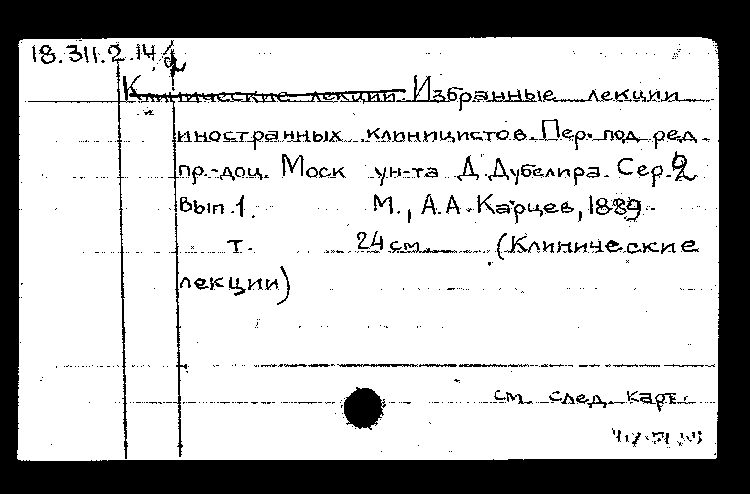 18.311.2.14
Клинические лекции. Избранные лекции
иностранных клиницистов. Пер. под ред.
пр.-доц. Моск ун-та Д. Дубелира. Сер. 2
вып. 1. М., А.А. Карцев, 1889.
т. 24 см. (Клинические
лекции)
см. след. карт.